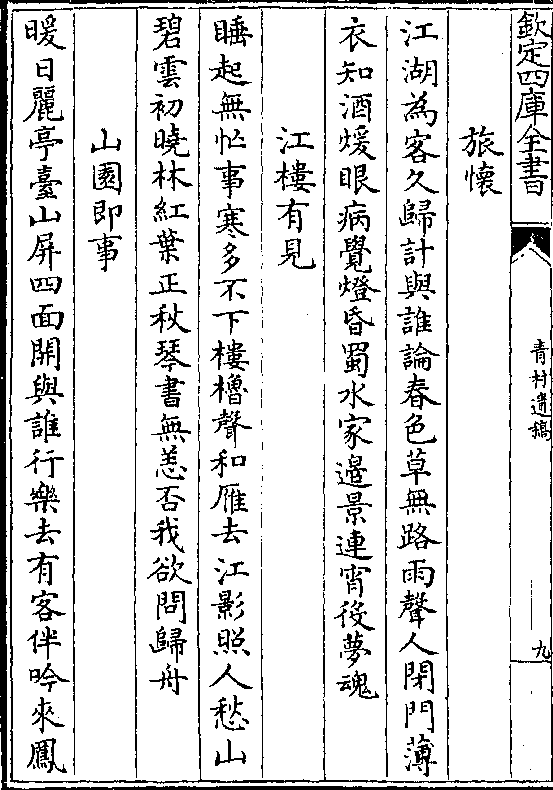 欽定四庫全書
青村遺稿
九
旅懷
江湖為客久歸計與誰論春色草無路雨聲人閉門薄
衣知酒煖眼病覺燈昏蜀水家邊景連宵役夢魂
江樓有見
睡起無忙事寒多不下樓櫓聲和雁去江影照人愁山
碧雲初曉林紅葉正秋琴書無恙否我欲問歸舟
山園即事
暖日麗亭臺山屏四面開與誰行樂去有客伴吟來鳳